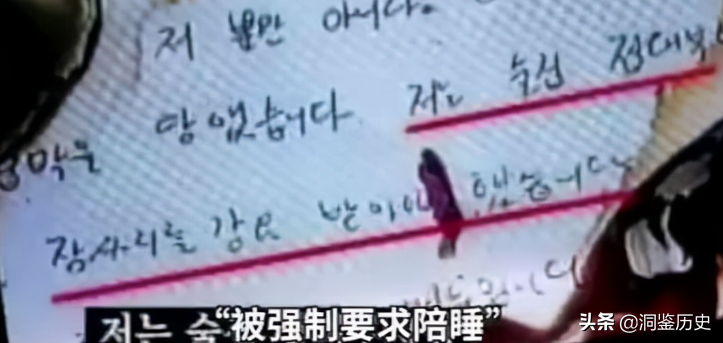 저 뿐만 아니다.
막은 당했습니다. 저는 술접 접대부
잠자리를 강요 받아야 했습니다
니다
저는 술
“被强制要求陪睡”
头条 @洞鉴历史